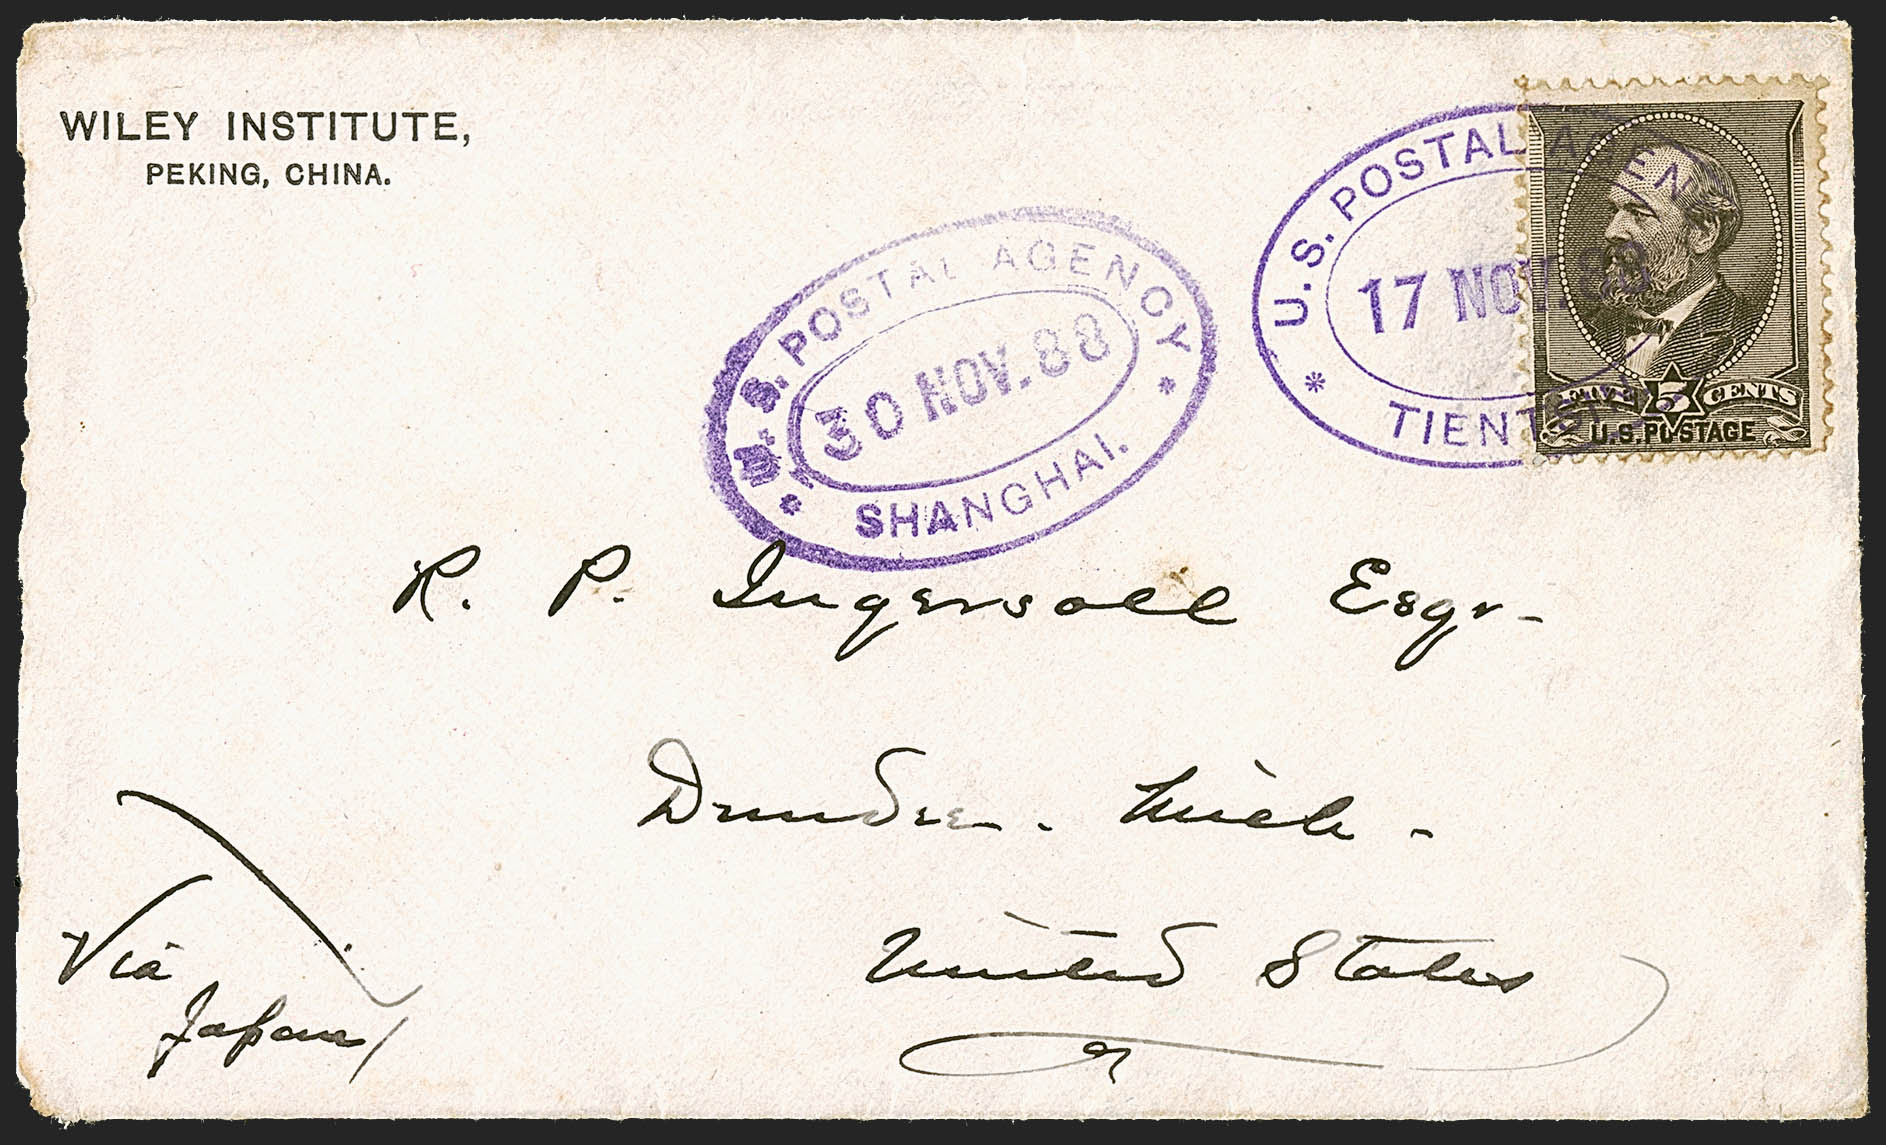 WILEY INSTITUTE,
PEKING, CHINA.
* U.S. POSTAL AGENCY *
30 NOV. 88
SHANGHAI.
* U.S. POSTAL AGEN
17 NOV. 88
TIENTSIN
FIVE 5 CENTS
U.S. POSTAGE
R. P. Ingersoll Esqr-
Dundee. Mich-
United States
Via
Japan